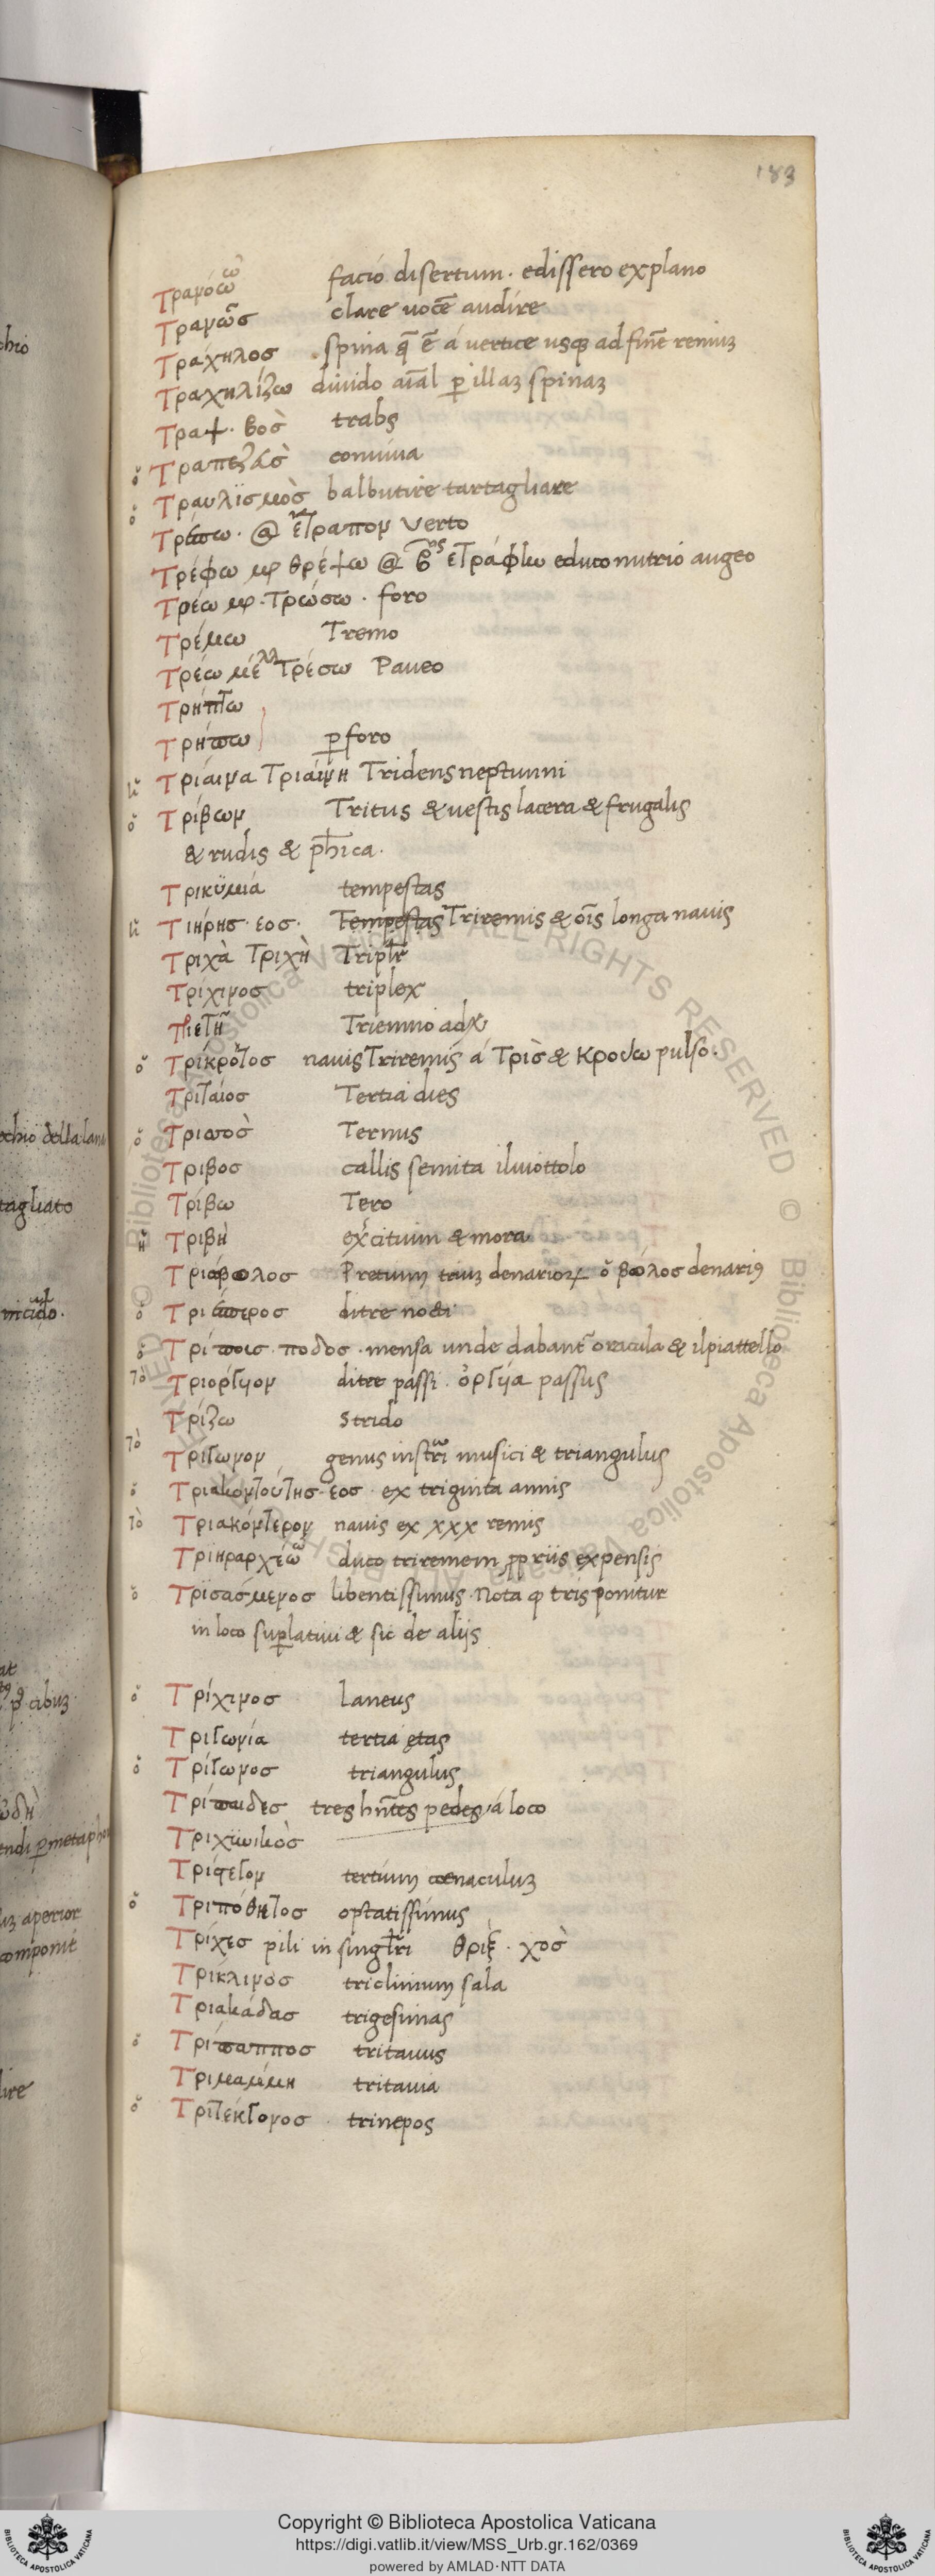 183
Τρανόω ῶ facio disertum · edissero explano
Τρανῶσ clare uocē audire
Τράχηλοσ spina q̄ ē á vertice usqꝫ ad finē reniuꝫ
Τραχηλίζω diuido aīal ꝑ illaꝫ spinaꝫ
Τραψ · βοσ̀ trabs
ὁ Τραπεζεὺσ conuiua
ὁ Τραυλϊσμοσ̀ balbutire tartagliare
Τρέπω · @ ἔτραπον verto
Τρέφω μ̅ θρέψω @ β ος ἐτράφην educo nutrio augeo
Τρέω μ̅ · Τρώσω · foro
Τρέμω Tremo
Τρέω μέλλ Τρέσω Paueo
Τρήπτω
Τρήπω ꝑforo
ἡ Τρίαινα Τριάινη Tridens neptunni
ὁ Τρίβων Tritus & uestis lacera & frugalis
& rudis & ph̄ica ·
Τρικϋμιά tempestas
ἡ Τιήρησ · εοσ · Tempestas Triremis & oīs longa nauis
Τριχὰ Τριχὴ Tripłr
Τρίχινοσ triplex
Τριετῆ Triennio adx
ὁ Τρίκρὅτοσ nauis Triremis á Τρὶσ & κρούω pulso ·
Τριταίοσ Tertia dies
ὁ Τριπὸσ Ternus
Τρίβοσ callis semita iluiottolo
Τρίβω Tero
ἡ Τριβὴ exercitium & mora
Τριόβολοσ Pretium triuꝫ denarioꝝ ὁ βόλοσ denariꝰ
ὁ Τριάπιροσ di tre nodi
ὁ Τρίποισ · ποδοσ · mensa unde dabant᷑ oracula & il piattello
Τὸ Τριόργιον di tre passi · ὀργία passus
Τρίζω Strido
Τὸ Τρίγωνον genus instr̄i musici & triangulus
ὁ Τριακοντούτησ · εοσ · ex triginta annis
Τὸ Τριακόντερον nauis ex xxx remis
Τριηραρχέω ῶ duco triremem ꝓpriis expensis
ὁ Τρϊσάσμενοσ libentissimus · Nota ꝙ tris ponitur
in loco suꝑlatiui & sic de alijs
ὁ Τρίχινοσ laneus
Τριγωνία tertia ętas
ὁ Τρίγωνοσ triangulus
Τρίπαιδεσ tres hn̄tes pedes á loco
Τριχϋϊκὸσ
Τρίστεγον tertium cenaculuꝫ
ὁ Τριπόθητοσ optatissimus
Τρίχεσ pili in singłri θρίξ · χοσ̀
Τρίκλινοσ triclinium sala
Τριακάδασ trigesimas
ὁ Τρίπαπποσ tritauus
Τριμαμμη tritauia
ὁ Τρϊτέκγονοσ trinepos
Copyright © Biblioteca Apostolica Vaticana
https://digi.vatlib.it/view/MSS_Urb.gr.162/0369
powered by AMLAD·NTT DATA